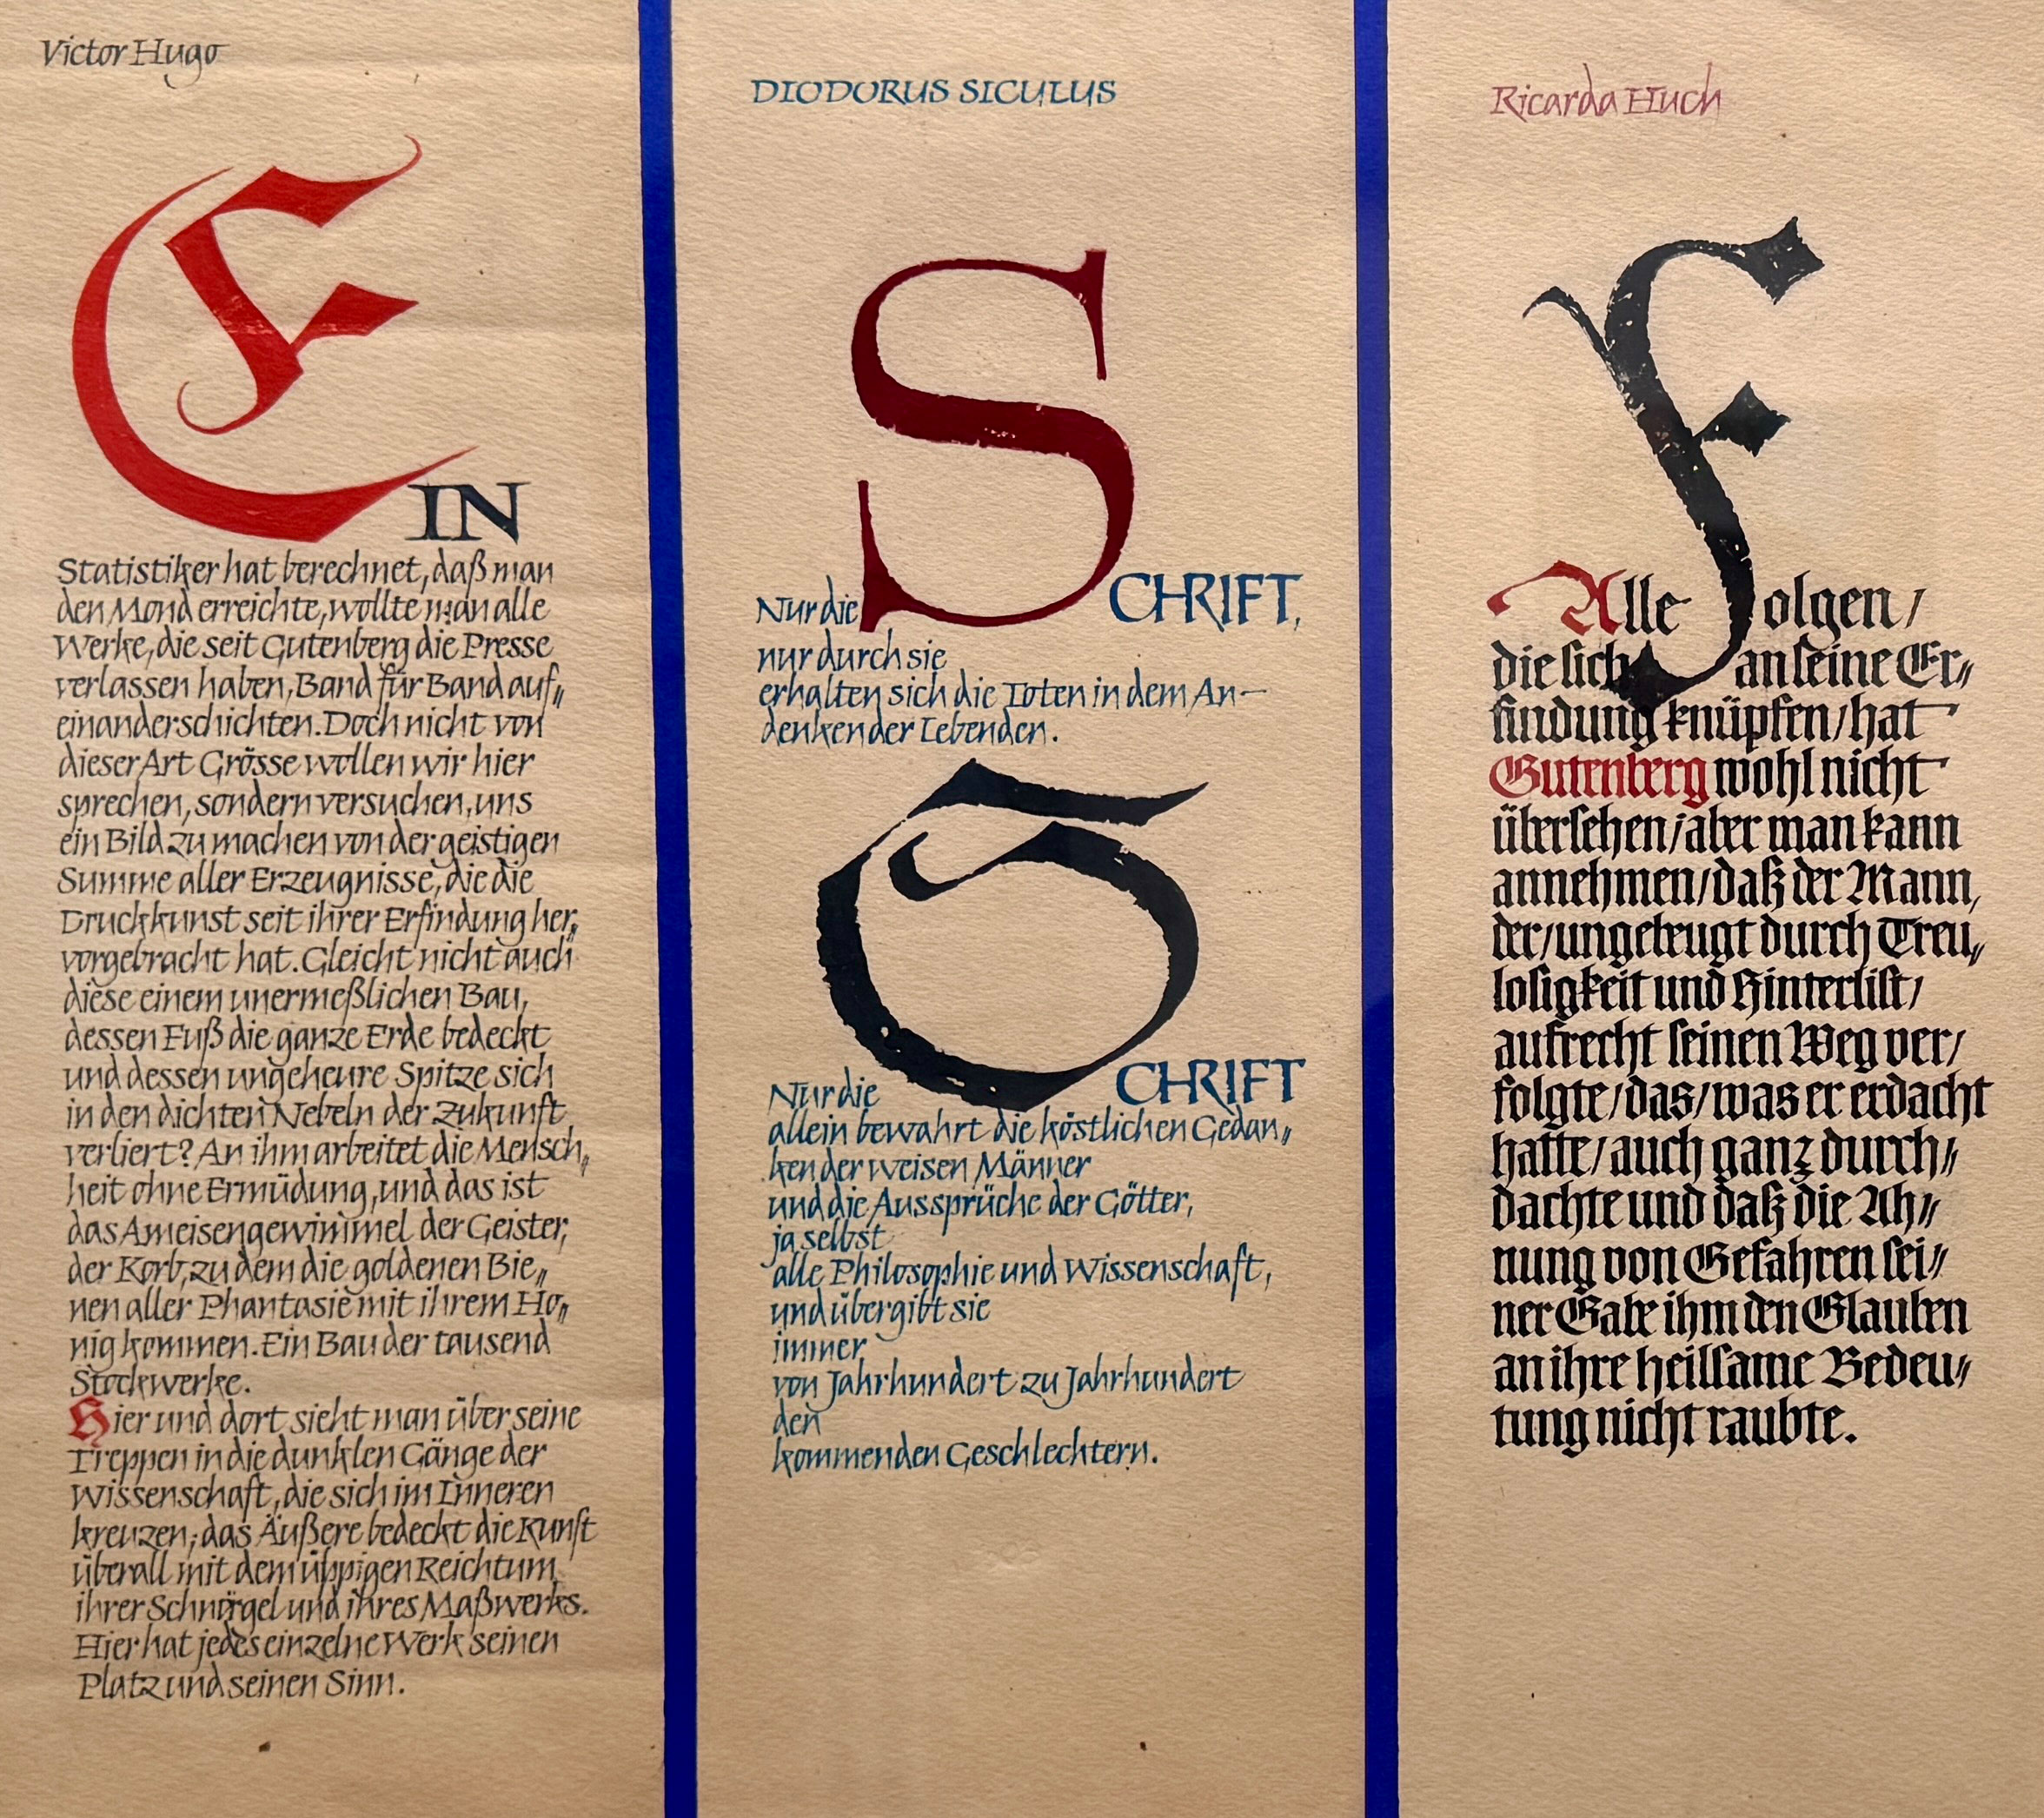 Victor Hugo
EIN
Statistiker hat berechnet, daß man
den Mond erreichte, wollte man alle
Werke, die seit Gutenberg die Presse
verlassen haben, Band für Band auf⸗
einanderschichten. Doch nicht von
dieser Art Grösse wollen wir hier
sprechen, sondern versuchen, uns
ein Bild zu machen von der geistigen
Summe aller Erzeugnisse, die die
Druckkunst seit ihrer Erfindung her⸗
vorgebracht hat. Gleicht nicht auch
diese einem unermeßlichen Bau,
dessen Fuß die ganze Erde bedeckt
und dessen ungeheure Spitze sich
in den dichten Nebeln der Zukunft
verliert? An ihm arbeitet die Mensch⸗
heit ohne Ermüdung, und das ist
das Ameisengewimmel der Geister,
der Korb, zu dem die goldenen Bie⸗
nen aller Phantasie mit ihrem Ho⸗
nig kommen. Ein Bau der tausend
Stockwerke.
Hier und dort sieht man über seine
Treppen in die dunklen Gänge der
Wissenschaft, die sich im Inneren
kreuzen; das Äußere bedeckt die Kunst
überall mit dem üppigen Reichtum
ihrer Schnörgel und ihres Maßwerks.
Hier hat jedes einzelne Werk seinen
Platz und seinen Sinn.
DIODORUS SICULUS
Nur die SCHRIFT,
nur durch sie
erhalten sich die Toten in dem An-
denken der Lebenden.
Nur die SCHRIFT
allein bewahrt die köstlichen Gedan⸗
ken der weisen Männer
und die Aussprüche der Götter,
ja selbst
alle Philosophie und Wissenschaft,
und übergibt sie
immer
von Jahrhundert zu Jahrhundert
den
kommenden Geschlechtern.
Ricarda Huch
Alle Folgen/
die sich an seine Er⸗
findung knüpfen/hat
Gutenberg wohl nicht
übersehen/aber man kann
annehmen/daß der Mann,
der/ungebeugt durch Treu⸗
losigkeit und Hinterlist/
aufrecht seinen Weg ver/
folgte/das/was er erdacht
hatte/auch ganz durch⸗
dachte und daß die Ah⸗
nung von Gefahren sei⸗
ner Gabe ihm den Glauben
an ihre heilsame Bedeu⸗
tung nicht raubte.